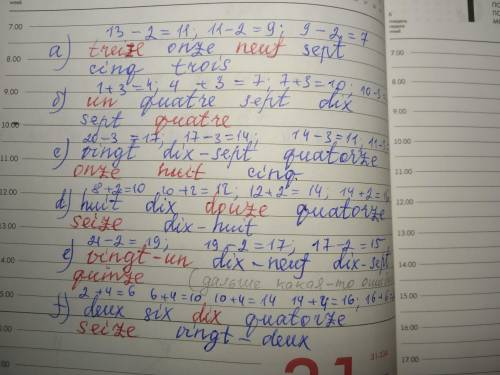 7.00
13 - 2 = 11; 11 - 2 = 9; 9 - 2 = 7
a) treize onze neuf sept
8.00
cinq trois
1 + 3 = 4; 4 + 3 = 7; 7 + 3 = 10; 10 - 3 =
9.00
б) un quatre sept dix
10.00
sept quatre
20 - 3 = 17, 17 - 3 = 14; 14 - 3 = 11,
c) vingt dix - sept quatorze
11.00
onze huit cinq.
8 + 2 = 10 10 + 2 = 12; 12 + 2 = 14; 14 + 2 =
12.00
d) huit dix douze quatorze
seize dix - huit
13.00
21 - 2 = 19; 19 - 2 = 17; 17 - 2 = 15
e) vingt - un dix - neuf dix - sept
14.00
quinze (дальше какая-то
2 + 4 = 6 6 + 4 = 10, 10 + 4 = 14 14 + 4 = 16;
15.00
f) deux six dix quatorze
seize vingt - deux
16.00
17.00
21